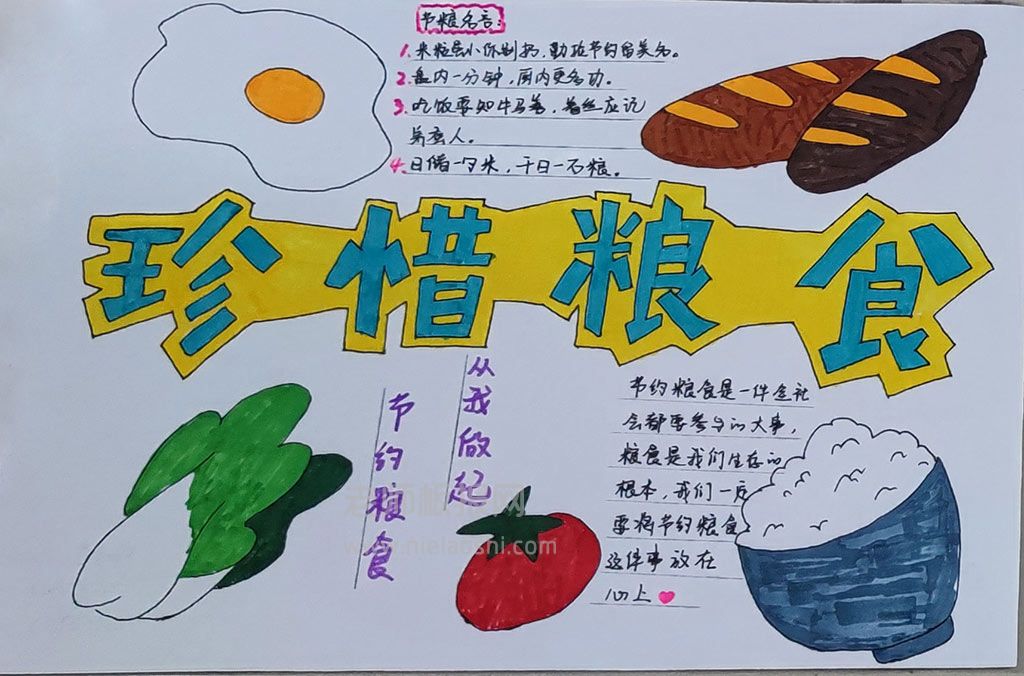 节粮名言:
1. 米粒虽小你别扔,勤拉节约留美名。
2. 盘内一分钟,田内更多功。
3. 吃饭要知牛马善,着丝应记
养蚕人。
4. 日储一勺米,千日一石粮。
珍惜粮食
从我做起
节约粮食
节约粮食是一件全社
会都要参与的大事,
粮食是我们生存的
根本,我们一定
要将节约粮食
这件事放在
心上
www.nielaoshi.com